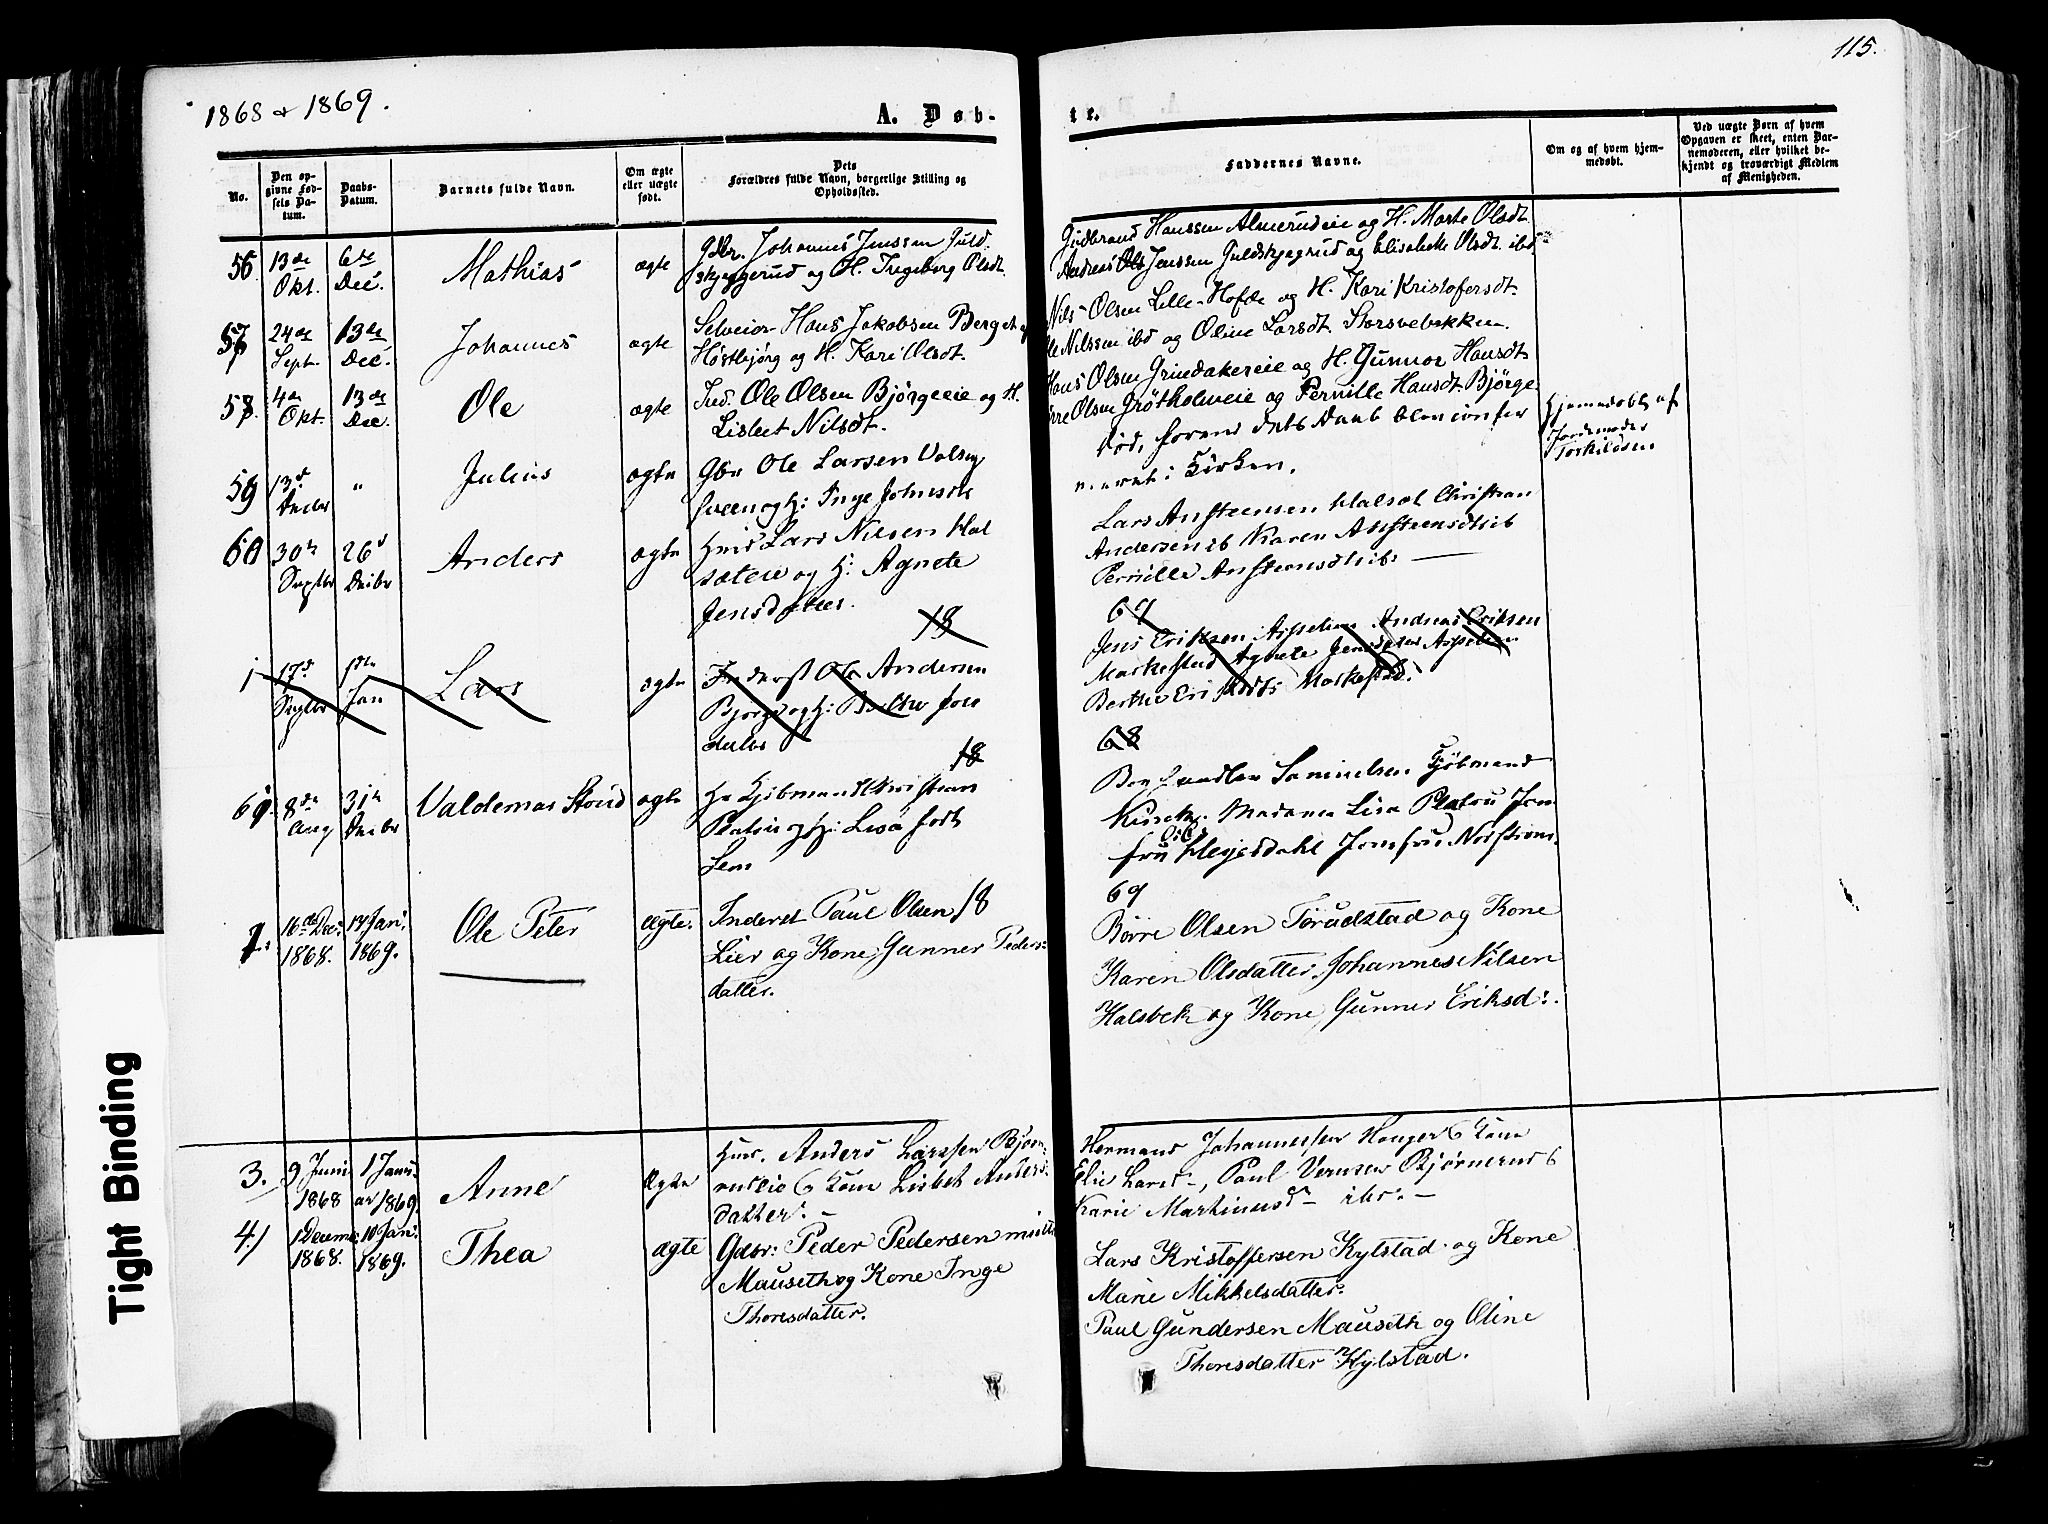 115.
1868 & 1869.
A. Døb-
te.
No.
Den op-
givne Fød-
sels Da-
tum.
Daabs-
Datum.
Barnets fulde Navn.
Om ægte
eller uægte
født.
Dets
Forældres fulde Navn, borgerlige Stilling og
Opholdssted.
Faddernes Navne.
Om og af hvem hjem-
medøbt.
Ved uægte Børn af hvem
Opgaven er skeet, enten Bar-
nemoderen, eller hvilket be-
kjendt og troværdigt Medlem
af Menigheden.
56.
13de
Okt.
6te
Dec.
Mathias
ægte
Gdbr. Johannes Jenssen Guld-
skjeggerud og H. Ingeborg Olsdt.
Gudbrand Hanssen Almerudeie og H. Marte Olsdt.
Andreas Jenssen Guldskjegrud og Elisabeth Olsdt. ibd.
57
24de
Sept.
13de
Dec.
Johannes
ægte
Selveier Hans Jakobsen Berget af
Høstbjørg og H. Kari Olsdt.
Nils Olsen Lille-Hofde og H. Kari Kristofersdt.
Nilssen ibd og Oline Larsdt. Storsvebakken.
58.
4de
Okt.
13de
Dec.
Ole
ægte
Ind. Ole Olsen Bjørgeeie og H.
Lisbet Nilsdt.
Hans Olsen Grindakereie og H. Gunnor Hansdt.
Olsen Grøtholmeie og Pernille Hansdt. Bjørge
59
13d
"
Julius
ægte
Gbr Ole Larsen Volsey
sveen og H: Inge Johnsdt
død, forend dets Daab blev confer
meret i Kirken.
Hjemmedøbt af
Jordemoder
Torkildsen
60
30te
Septbr
26d
Decbr
Anders
ægte
Lars Nilsen Hal
sæteie og H: Agnete
Jensdatter.
Lars Anstensen Halsæt Christian
Andersen ib Karen Anstensdt ib
Pernille Anstensdt ib.
18
67
1
17d
Septbr
1ste
Jan
Lars
ægte
Inderst Ole Andersen
Bjørge og H: Berthe
Jens Eriksen Andreas Eriksen
Markestad Agnete Jensdatter
Berthe Eriksdt Markestad.
18
68
61.
8de
Aug
31te
Decbr
Valdemar
ægte
Hr Kjøbmand Christian
Platou og H: Lisa født
Lem
Boghandler Samuelsen Kjøbmand
Madame Lisa Platou Jom
fru Jomfru
69
1.
16de Dec.
1868.
17 Jan.
1869.
Ole Peter
ægte.
Inderst Paul Olsen 18
Lier og Kone Gunner Peders-
datter.
Børre Olsen Torudstad og Kone
Karen Olsdatter, Johannes Nilsen
Halsbek og Kone, Gunner Eriksd:.
3.
9 Juni
1868
1 Janu-
ar 1869.
Anne
ægte
Anders Larssen Bjørn-
Kone Lisbet Anders-
datter. -
Hermand Johannessen Kone
Elie Larsd-, Paul Bjørnerud
Karie Martinusd - ibd. -
4.)
1 Decemb.
1868.
10 Jan.
1869.
Thea
ægte
Gdbr: Peder Pedersen
Mauseth og Kone Inge
Thoresdatter.
Lars Kristoffersen Kylstad og Kone
Marie Mikkelsdatter.
Paul Gundersen Mauseth og Oline
Thoresdatter Kylstad.
Tight Binding